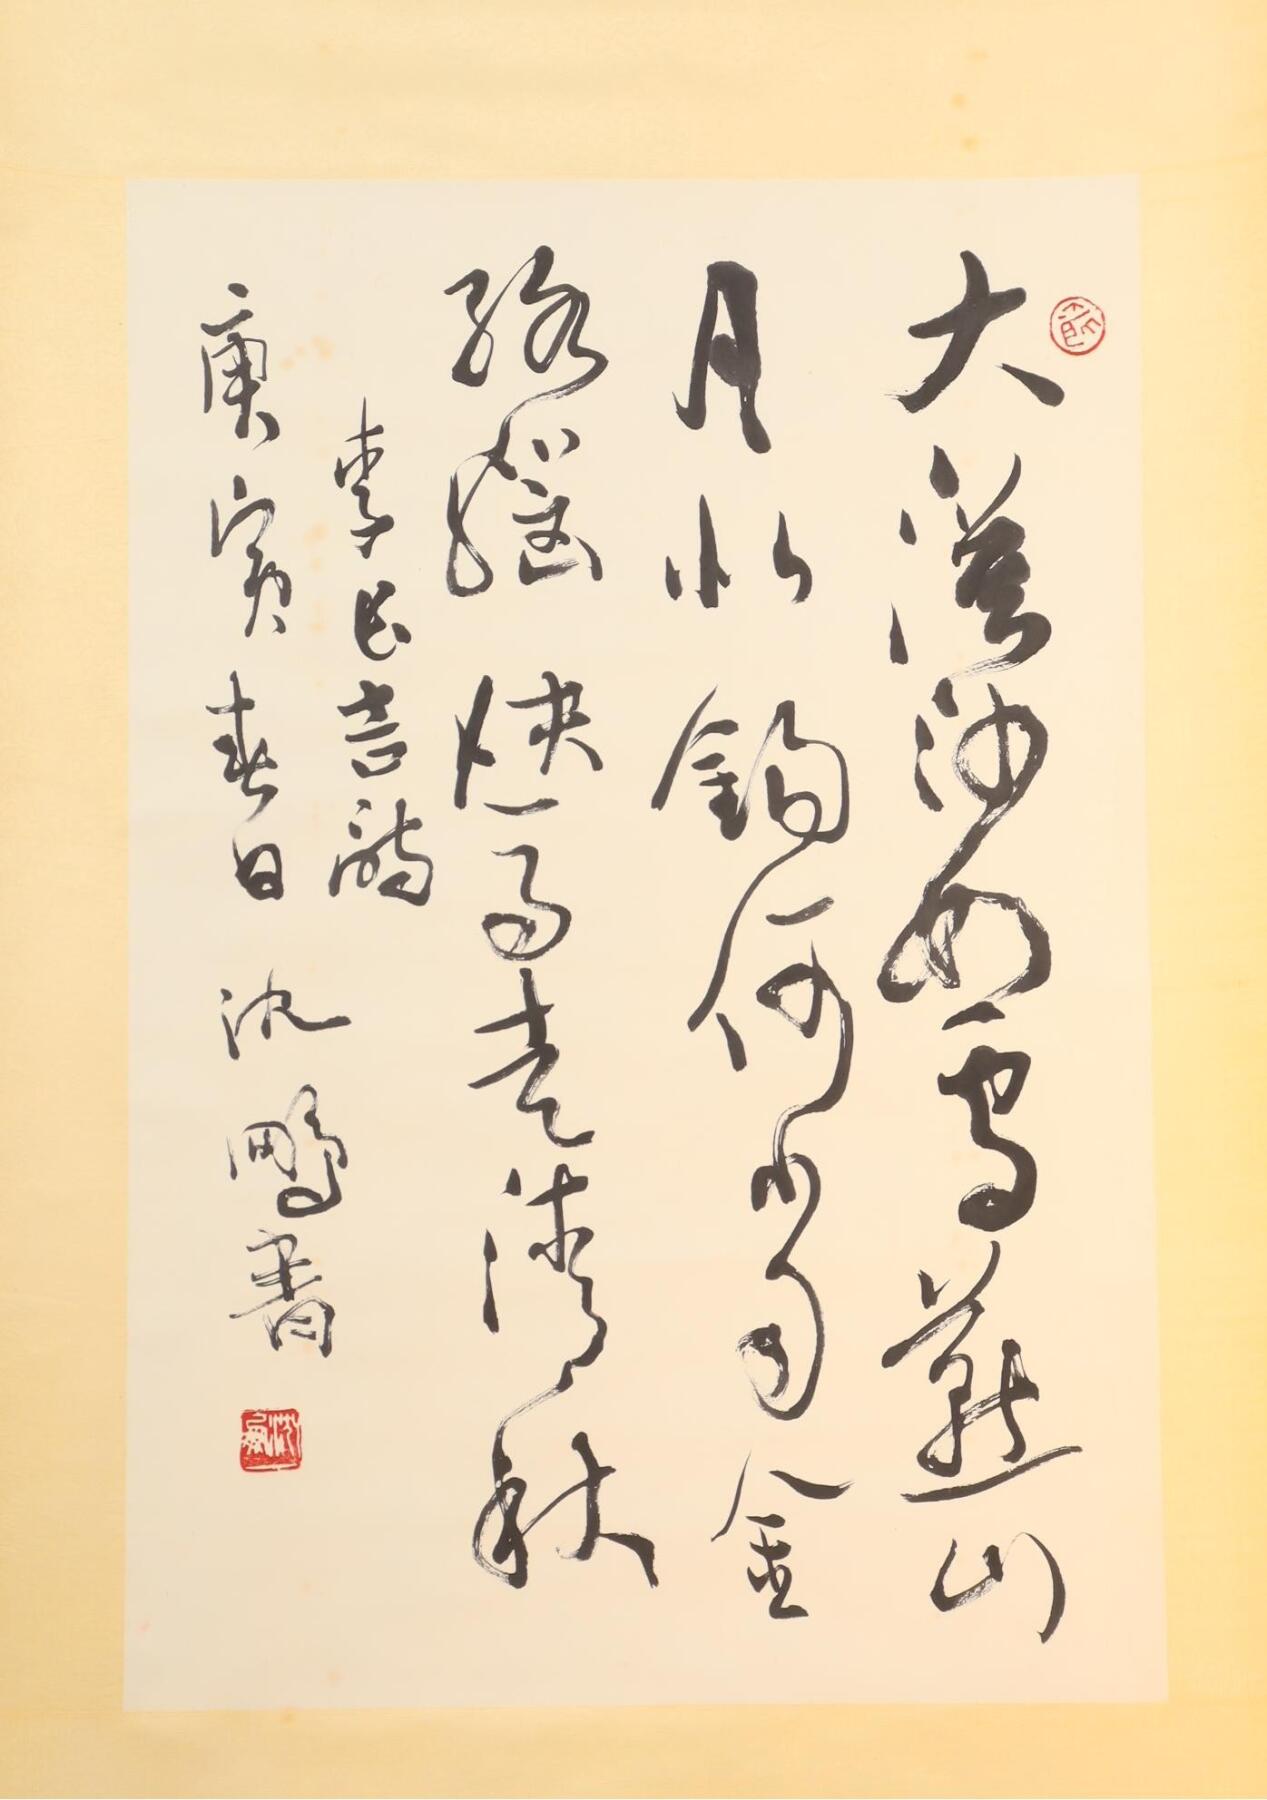 大漠沙如雪燕山
月似鈎何當金
絡腦快馬走清秋
李長吉詩
庚寅春日沈鵬書
沈鵬